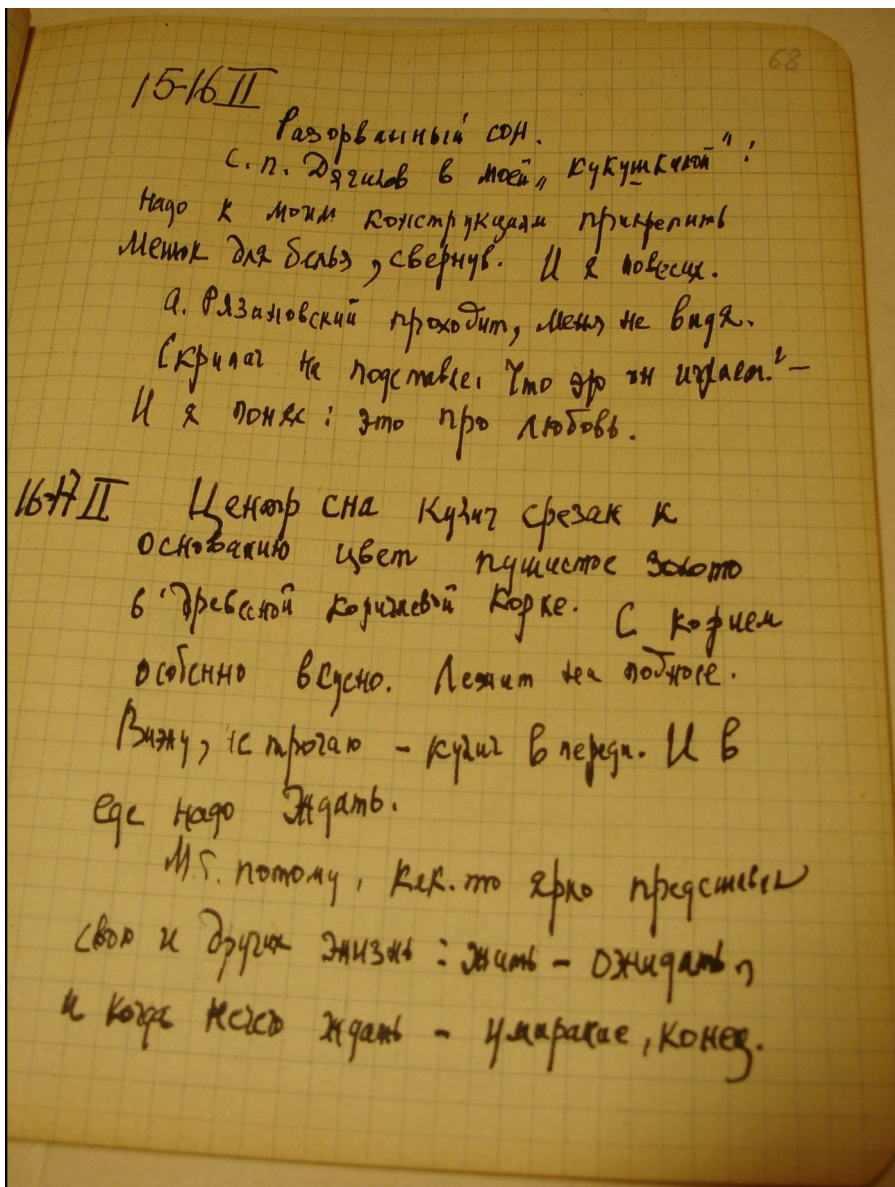 68
15-16 II
Разорванный сон.
С. П. Дягилев в моей „кукушкиной":
надо к моим конструкциям прикрепить
мешок для белья, свернув. И я повесил.
А. Рязановский проходит, меня не видя.
Скрипач на подставке. Что это он играет? —
И я понял: это про любовь.
16-17 II Центр сна кулич срезан к
основанию цвет пушистое золото
в древесной коричневой корке. С корнем
особенно вкусно. Лежит на подносе.
Вижу, не трогаю – кулич впереди. И в
еде надо ждать.
М.б. потому, как-то ярко представил
свою и других жизнь: жить – ожидать,
и когда нечего ждать – умирание, конец.